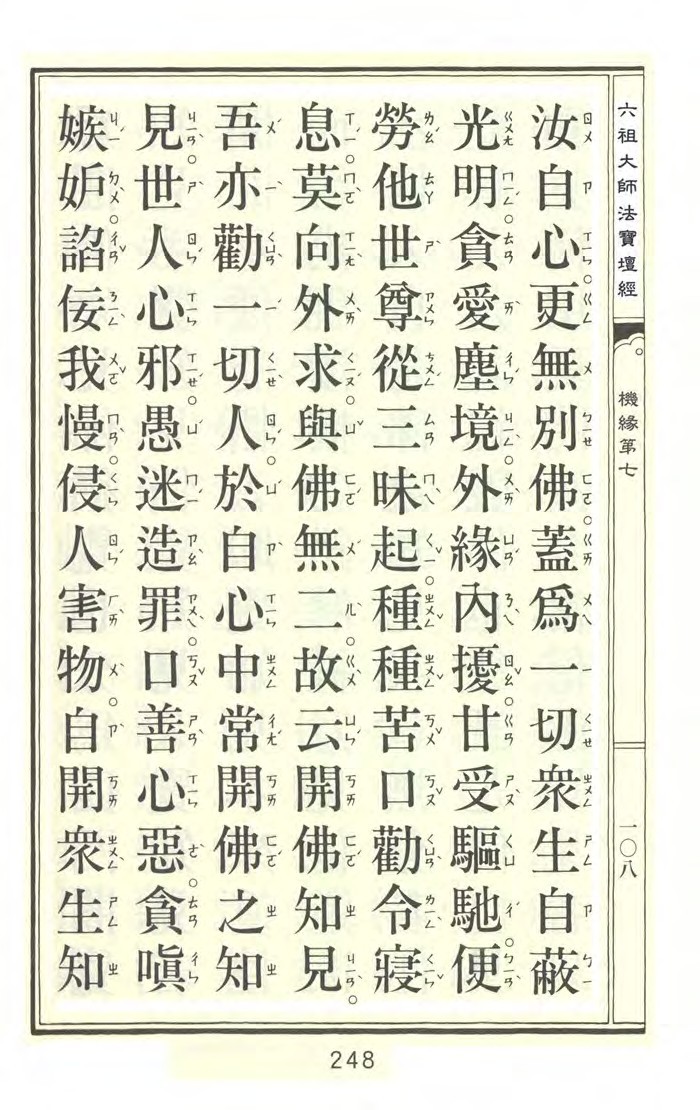 六祖大師法寶壇經
機緣第七
一〇八
汝自心。更無別佛。蓋爲一切衆生自蔽
光明。貪愛塵境。外緣內擾。甘受驅馳。便
勞他世尊從三昧起。種種苦口勸令寢
息。莫向外求。與佛無二。故云開佛知見。
吾亦勸一切人。於自心中常開佛之知
見。世人心邪。愚迷造罪。口善心惡。貪嗔
嫉妒。諂佞我慢。侵人害物。自開衆生知
248